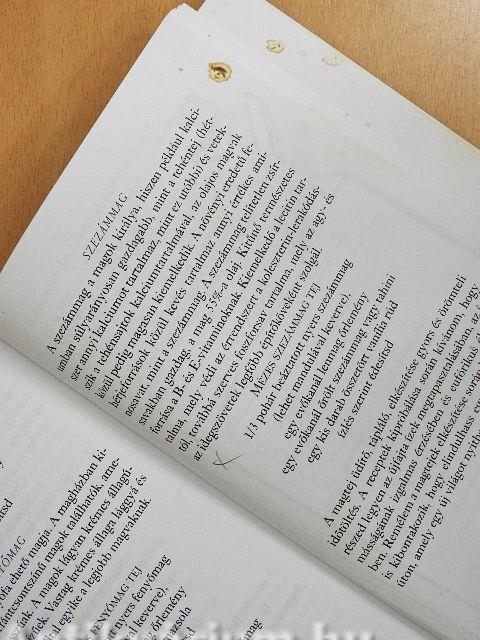 SZEZÁMMAG
A szezámmag a magok királya, hiszen például kalci-
umban súlyarányosan gazdagabb, mint a tehéntej (hét-
szer annyi kalciumot tartalmaz, mint ez utóbbi) és vetek-
szik a chénsajtok kalciumtartalmával, az olajos magvak
közül pedig magasan kiemelkedik. A növényi eredetű fe-
hérjeforrások közül kevés tartalmaz annyi értékes ami-
nosavat mint a szezámmag. A szezámmag telítetlen zsír-
savakban gazdag, a mag 55%-a olaj. Kitűnő természetes
forrása a B- és E-vitaminoknak. Kiemelkedő a lecitin tar-
talma, mely védi az érrendszert a koleszterin-lerakódás-
tól, továbbá szerves foszforsav tartalma, mely az agy- és
az idegszövetek legfőbb építőköveként szolgál.
MÉZES SZEZÁMMAG TEJ
1/3 pohár beáztatott nyers szezámmag
(lehet mandulával keverve),
egy evőkanál lenmag őrlemény
egy evőkanál őrölt szezámmag vagy tahini
egy kis darab összetört vanília rúd
ízlés szerint édesítsd
A magtej üdítő, tápláló, elkészítése gyors és örömteli
időtöltés. A receptek kipróbálása során kívánom, hogy
részed legyen az újfajta ízek megtapasztalásában, az
másságának izgalmas érzésében és eufórikus
ben. Remélem a magtejek elkészítése során
is kibontakozik, hogy elindulhass
úton, amely egy új világot
ítsd
NYŐMAG
ofa ehető magja. A magházban ki-
fántcsontszínű magok találhatók, ame-
A magok lágyan krémes állagú-
Vastag krémes állaga lággyá és
egyike a legjobb magvaknak
NYŐMAG TEJ
nyers fenyőmag
keverve),
őrlemény
mag